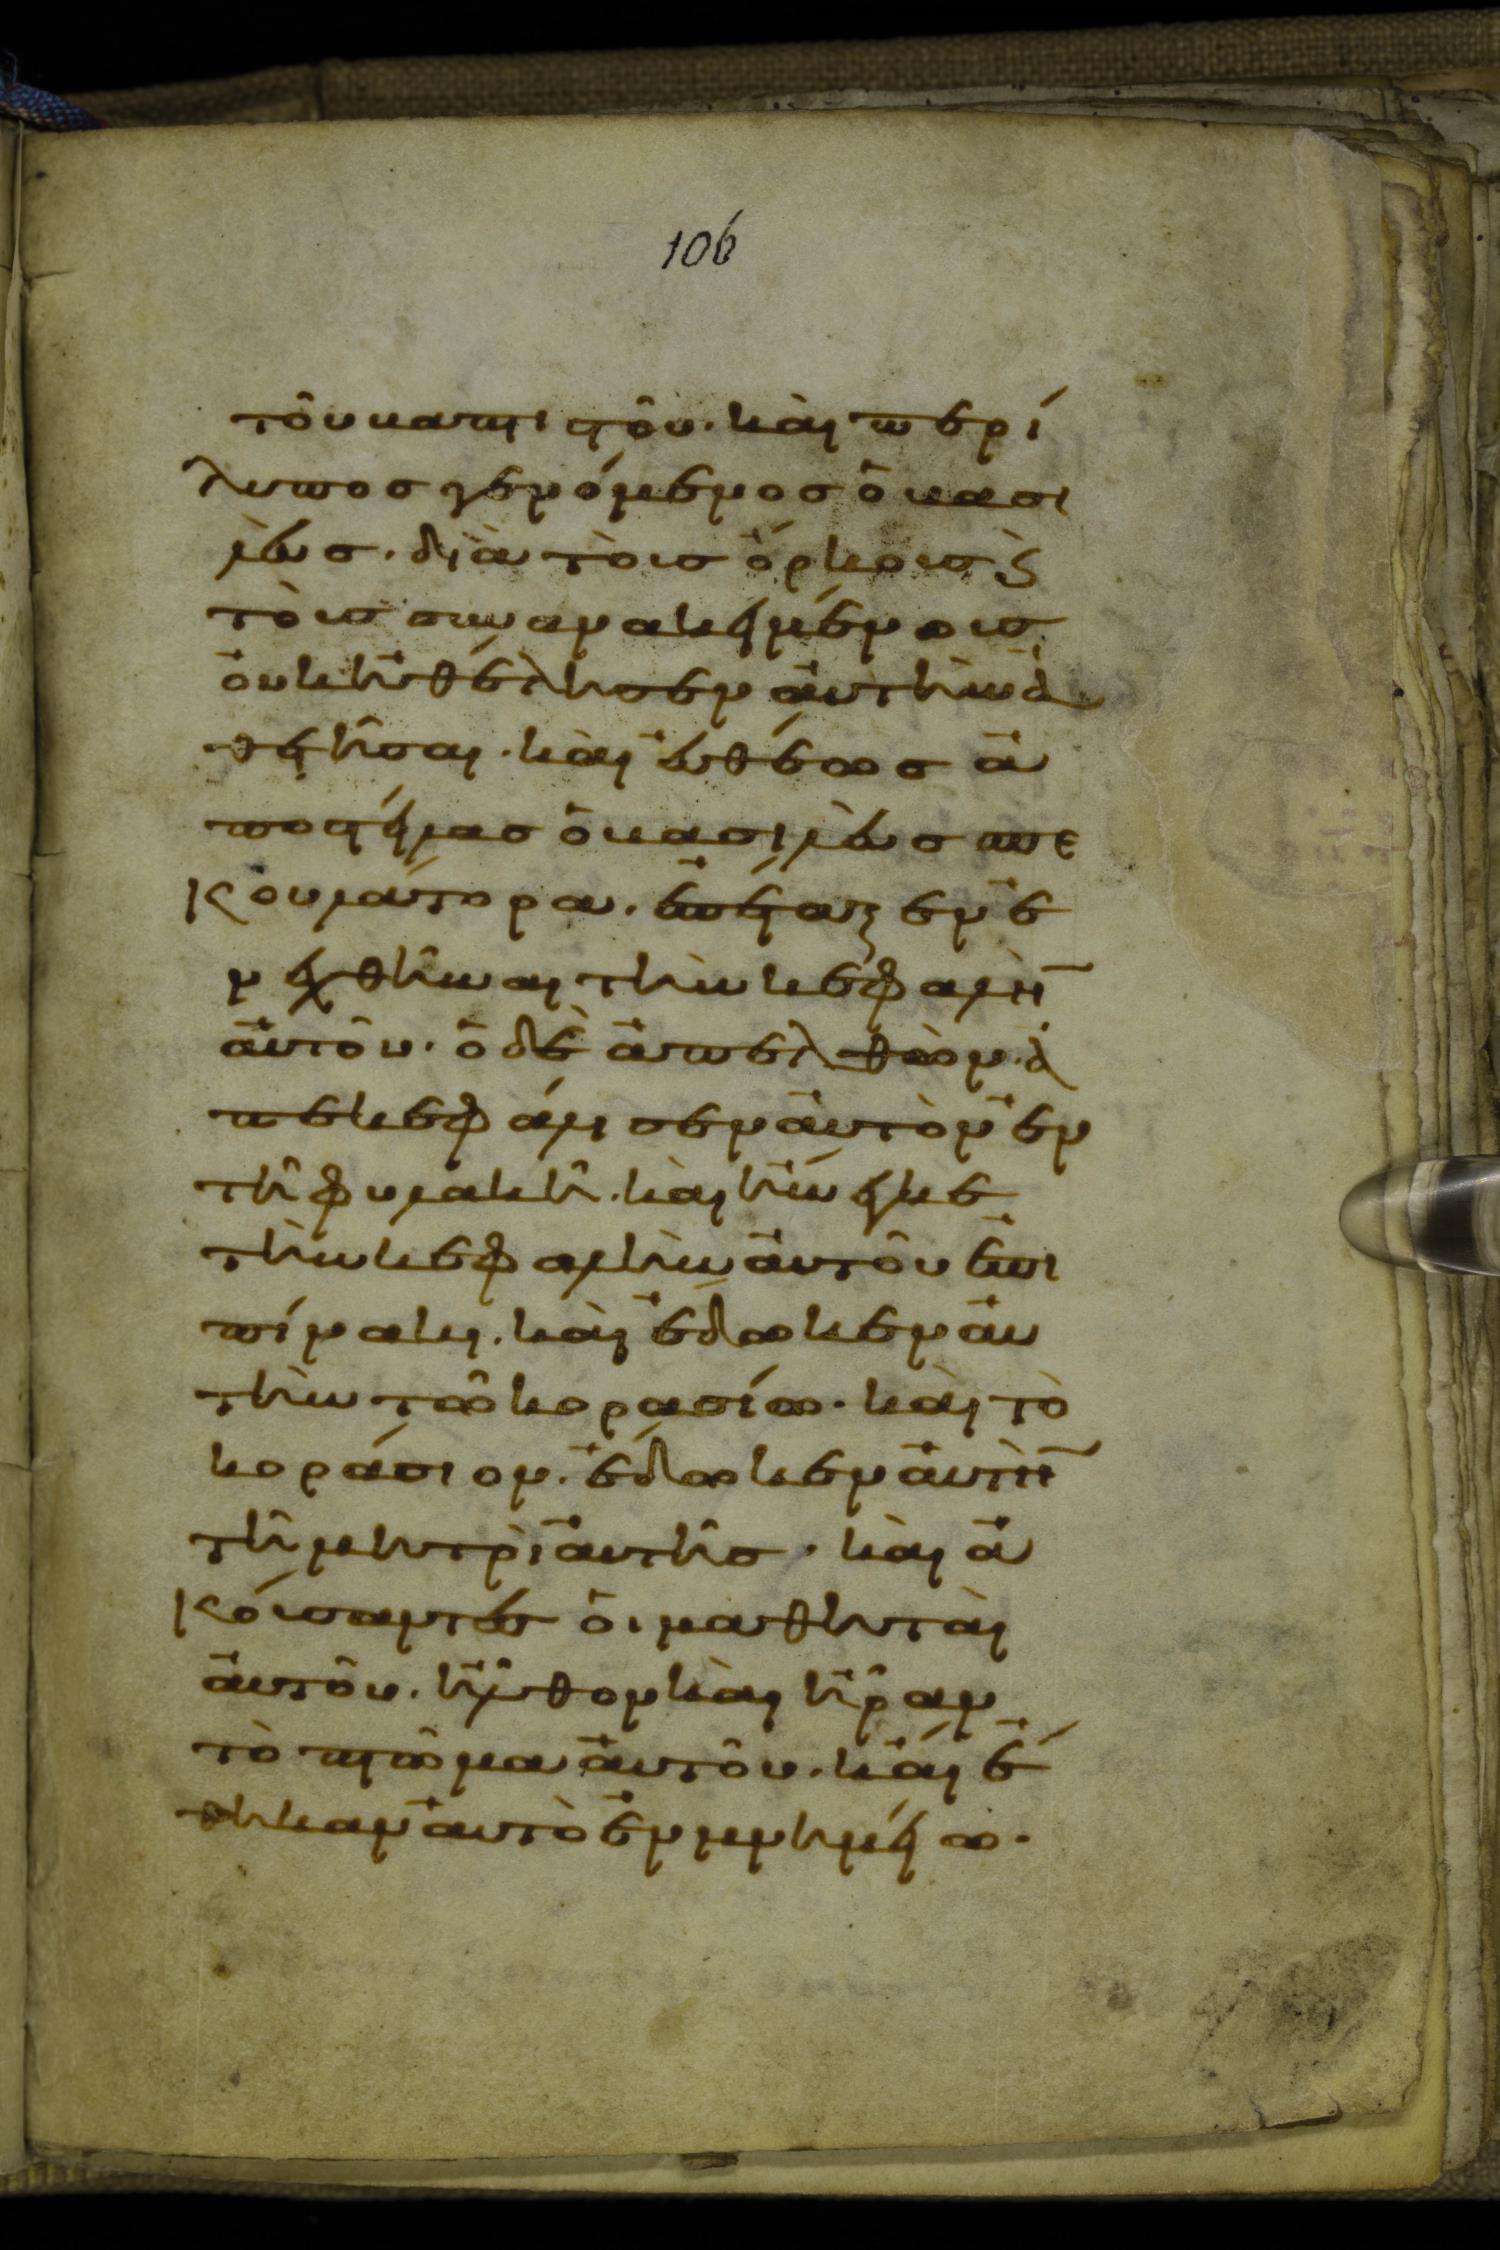 106
τοῦ βαπτιστοῦ. καὶ περί
λυπος γενόμενος ὁ βασι
λεὺς. διὰ τοὺς ὅρκους ϗ
τοὺς συνανακειμένους
οὐκ ἠθέλησεν αὐτὴν ἀ
θετῆσαι. καὶ εὐθέως ἀ
ποστείλας ὁ βασιλεὺς σπε
κουλάτορα. ἐπέταξεν ἐ
νεχθῆναι τὴν κεφαλὴν
αὐτοῦ. ὁ δὲ ἀπελθὼν ἀ
πεκεφάλισεν αὐτὸν ἐν
τῆ φυλακῆ. καὶ ἤνεγκε
τὴν κεφαλὴν αὐτοῦ ἐπι
πίνακι. καὶ ἔδωκεν αὐ
τὴν τῶ κορασίω. καὶ τὸ
κοράσιον. ἔδωκεν αὐτὴν
τῆ μητρὶ αὐτῆς. καὶ ἀ
κούσαντες οἱ μαθηταὶ
αὐτοῦ. ἦλθον καὶ ἦραν
τὸ πτῶμα αὐτοῦ. καὶ ἔ
θηκαν αὐτὸ ἐν μνημείω.